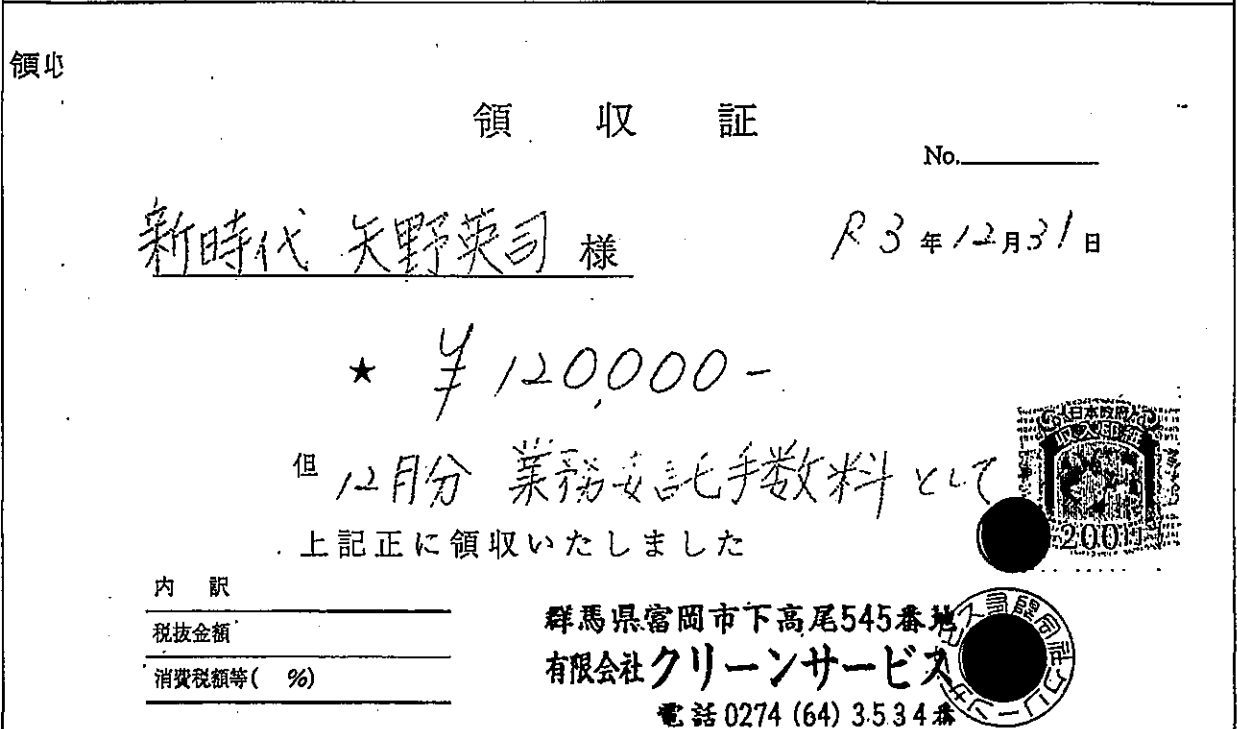 領収
領収証
No.
新時代 矢野英司 様
R3年12月31日
★ ¥120,000-
但 12月分 業務委託手数料として
上記正に領収いたしました
日本政府
200円
内訳
税抜金額
消費税額等( %)
群馬県富岡市下高尾545番地
有限会社クリーンサービス
電話0274(64)3534番